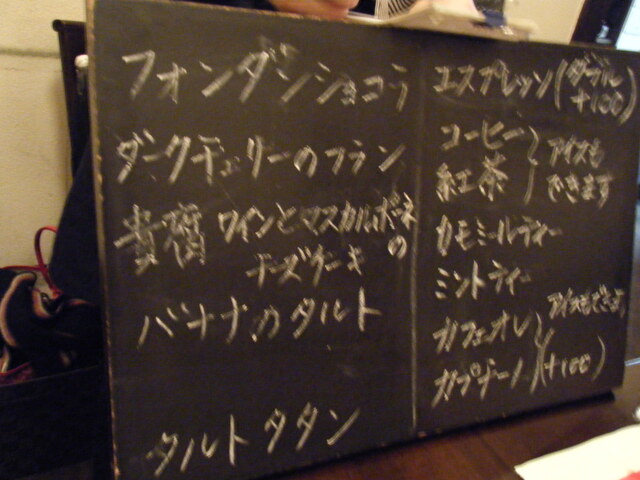 フォンダンショコラ
ダークチェリーのフラン
貴腐ワインとマスカルポーネの
チーズケーキ
バナナのタルト
タルトタタン
エスプレッソ(ダブル
+100)
コーヒー
紅茶
アイスも
できます
カモミールティー
ミントティー
カフェオレ
カプチーノ
アイスもできます
(+100)